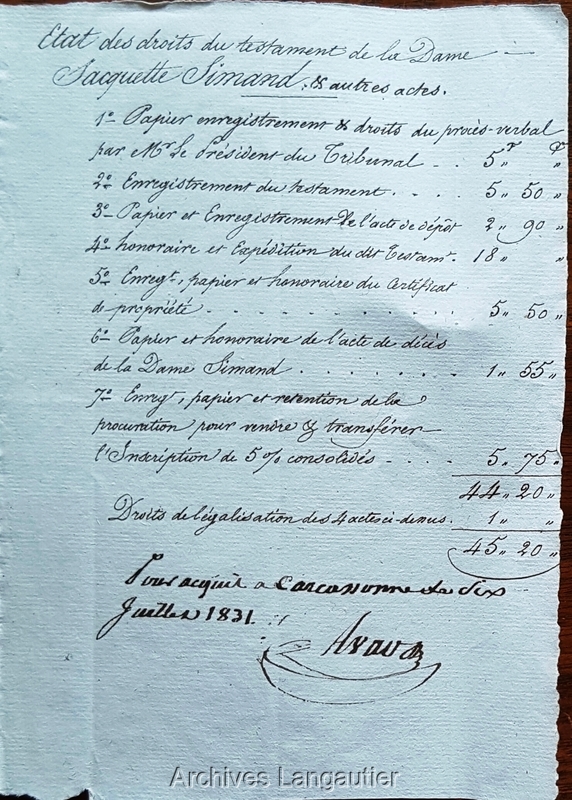 Etat des droits du testament de la Dame
Jacquette Simand, & autres actes.
1º Papier enregistrement & droits du procès-verbal
par Mr. le Président du Tribunal . . 5 " "
2º Enregistrement du testament . . . . 5 " 50 "
3º Papier et Enregistrement de l'acte de dépôt 2 " 90 "
4º honoraire et Expédition du dit Testamt. 18 " "
5º Enregt., papier et honoraire du Certificat
de propriété . . . . . . . . . . . . 5 " 50 "
6º Papier et honoraire de l'acte de décès
de la Dame Simand . . . . . . . . 1 " 55 "
7º Enregt., papier et retention de la
procuration pour vendre & transférer
l'Inscription de 5 % consolidés . . . . . 5 " 75 "
44 " 20 "
Droits de légalisation des 4 actes ci-dessus. 1 " "
45 " 20 "
Pour acquit a Carcassonne le Six
Juillet 1831.
Archives Langautier